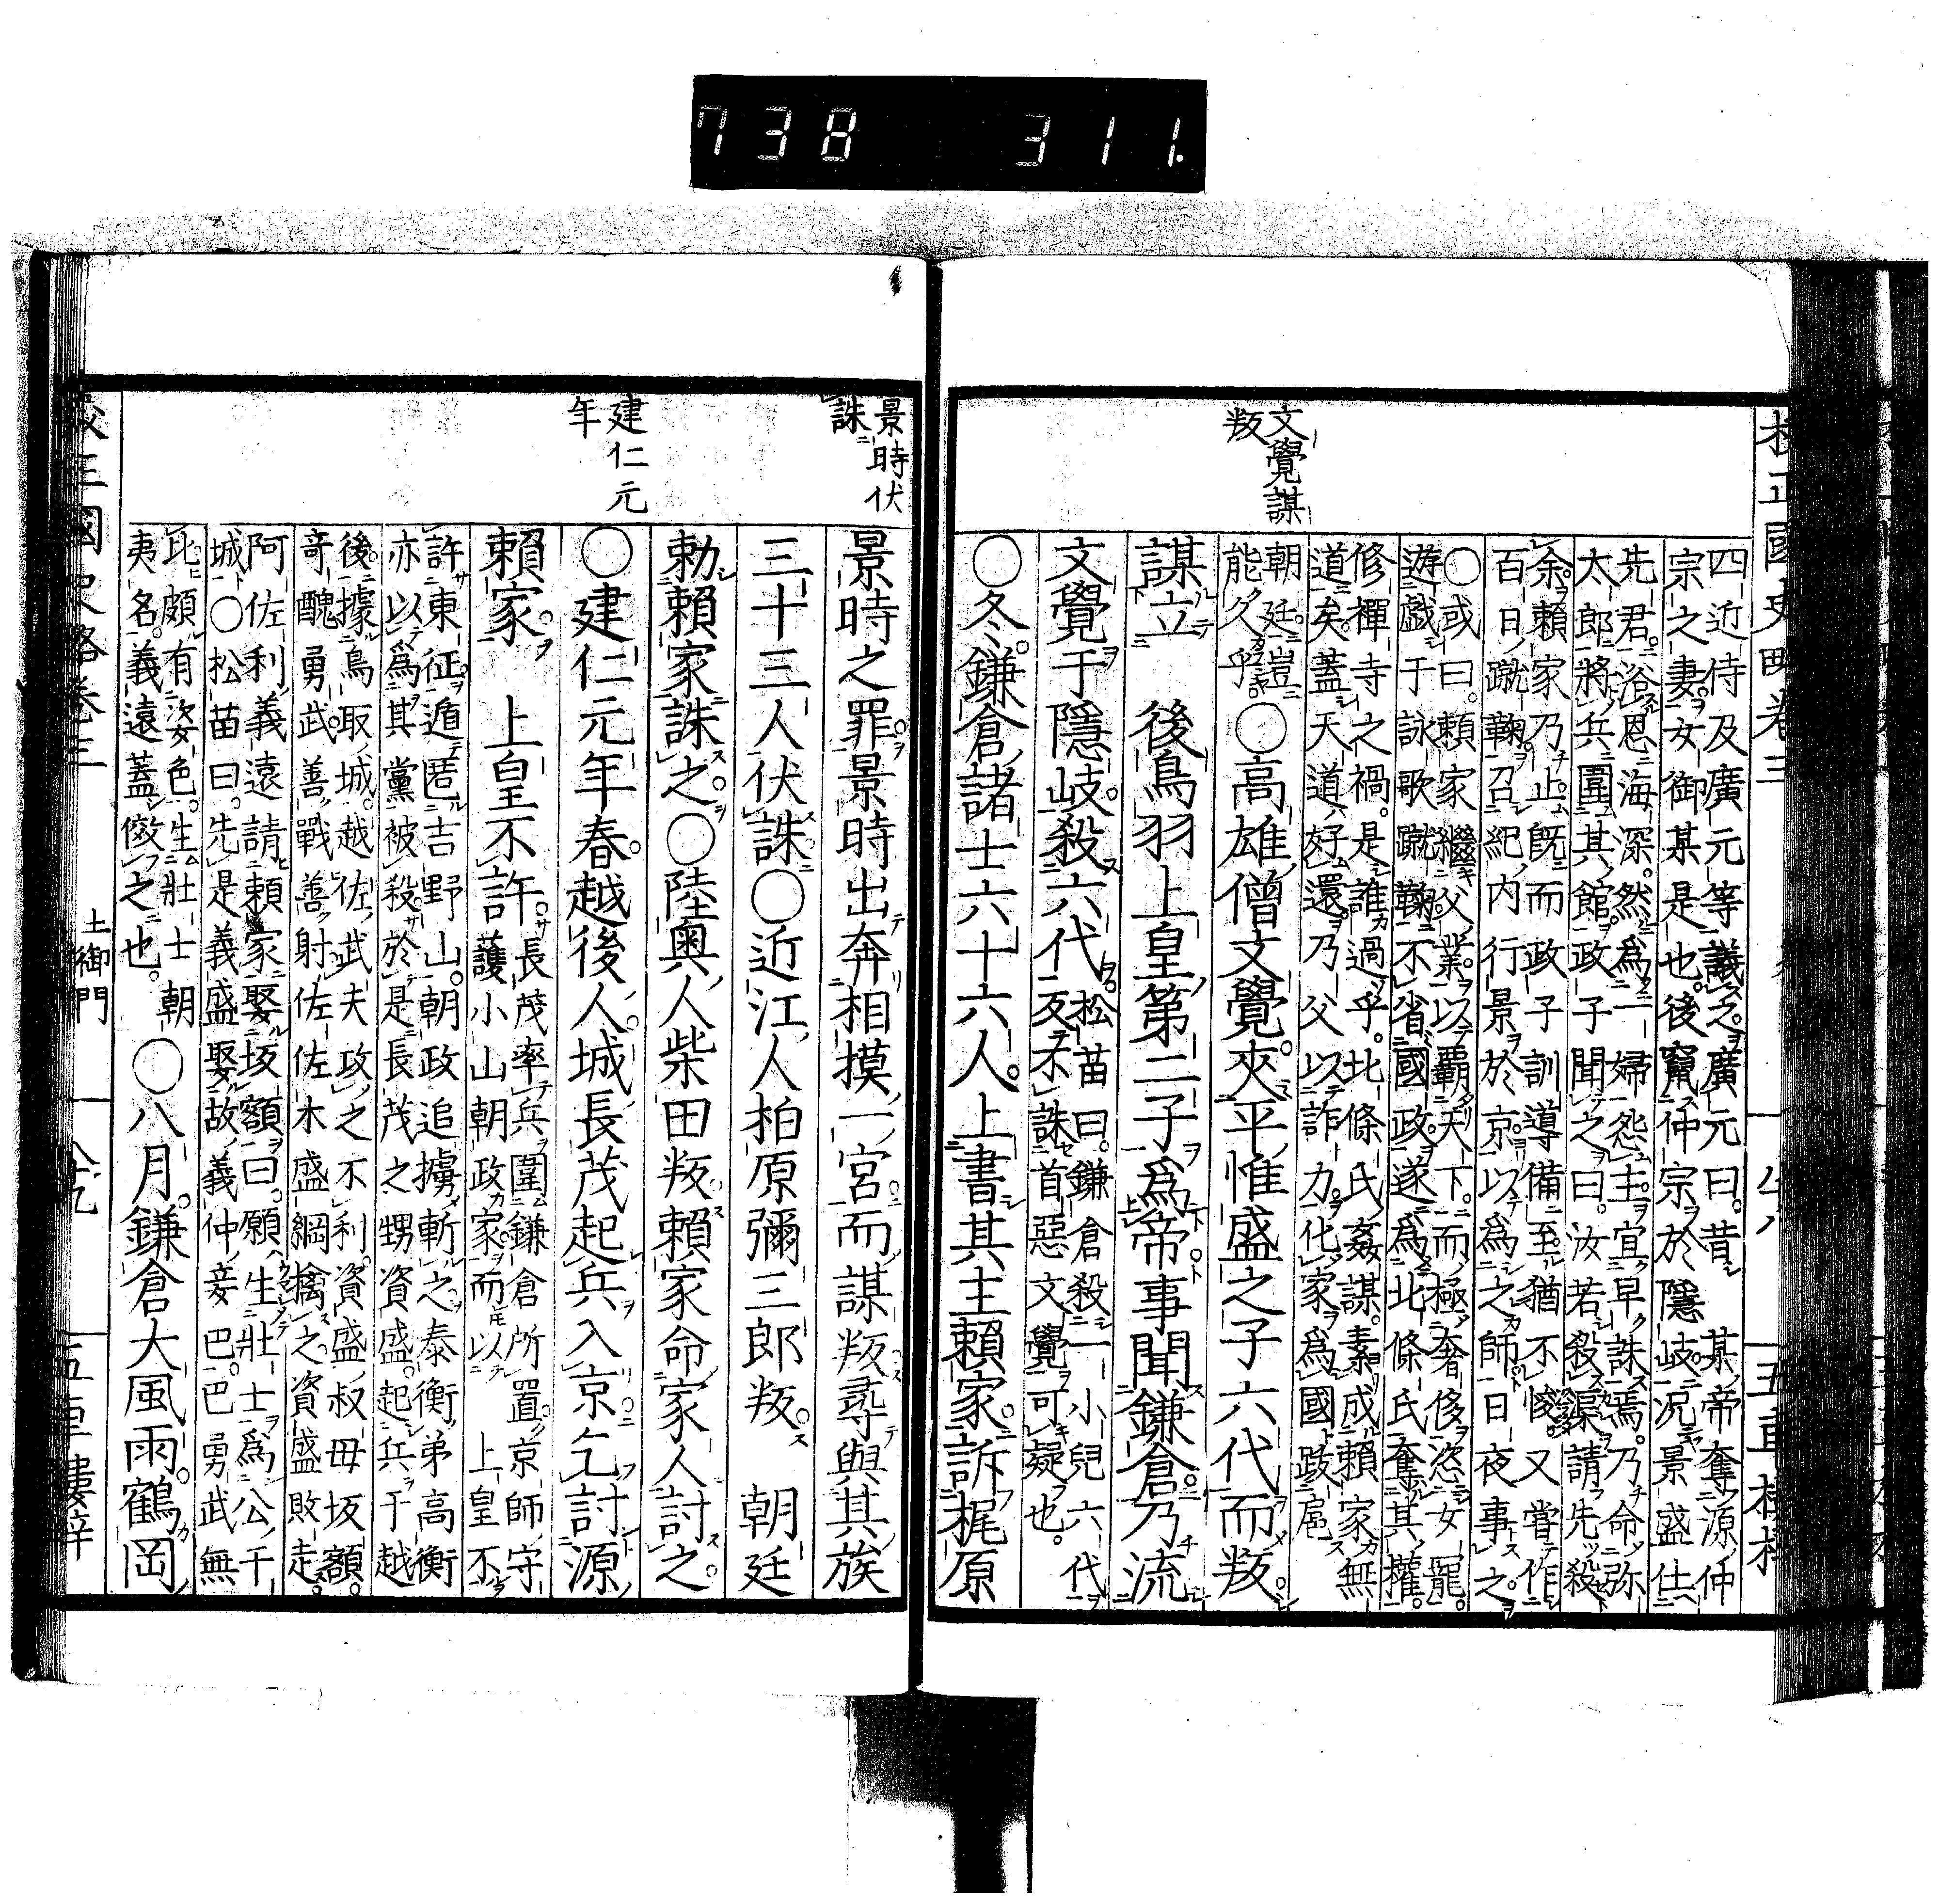 738 311.
校正國史略卷三
四近侍及廣元等議之廣元曰。昔 某帝奪源仲
宗之妻。女御某是也。後竄仲宗於隱岐。况景盛仕
先君。浴恩海深。然爲一婦怨主。宜早誅焉。乃命弥
太郎將兵圍其館。政子聞之曰。汝若殺渠請先殺
余。賴家乃止。既而政子訓導備至。猶不悛。又嘗作
百日蹴鞠。召紀内行景於京。以爲之師。日夜事之
○或曰。賴家繼父業。以覇天下。而極奢侈恣女寵。
遊戯于詠歌蹴鞠。不省國政。遂爲北條氏奪其權。
修禪寺之禍。是誰過乎。北條氏姦謀。素成賴家無
道矣。蓋天道好還。乃父以詐力。化家爲國。跋扈
朝廷。豈
能久乎。
○高雄僧文覺。夾平惟盛之子六代而叛。
謀立 後鳥羽上皇第二子爲帝。事聞鎌倉。乃流
文覺于隱岐。殺六代。
松苗曰。鎌倉殺一小兒六代
反不誅首惡文覺。可疑也。
○冬。鎌倉諸士六十六人。上書其主賴家。訴梶原
文覺謀
叛
景時之罪。景時出奔相摸一宮。而謀叛。尋與其族
三十三人伏誅。○近江人柏原彌三郎叛。 朝廷
勅賴家誅之。○陸奥人柴田叛。賴家命家人討之。
○建仁元年春。越後人城長茂起兵入京。乞討源
賴家。 上皇不許。
長茂率兵圍鎌倉所置京師守
護小山朝政家。而以 上皇不
許東征。遁匿吉野山。朝政追擄斬之。泰衡弟高衡
亦以爲其黨被殺。於是長茂之甥資盛。起兵于越
後。據鳥取城。越佐武夫攻之不利。資盛叔母坂額。
奇醜勇武。善戰善射。佐佐木盛綱擒之。資盛敗走。
阿佐利義遠請賴家娶坂額曰。願生壯士爲公干
城。○松苗曰。先是義盛娶故義仲妾巴。巴勇武無
比。頗有姿色。生壯士朝
夷名。義遠蓋傚之也。
○八月。鎌倉大風雨。鶴岡
景時伏
誅
建仁元
年
土御門